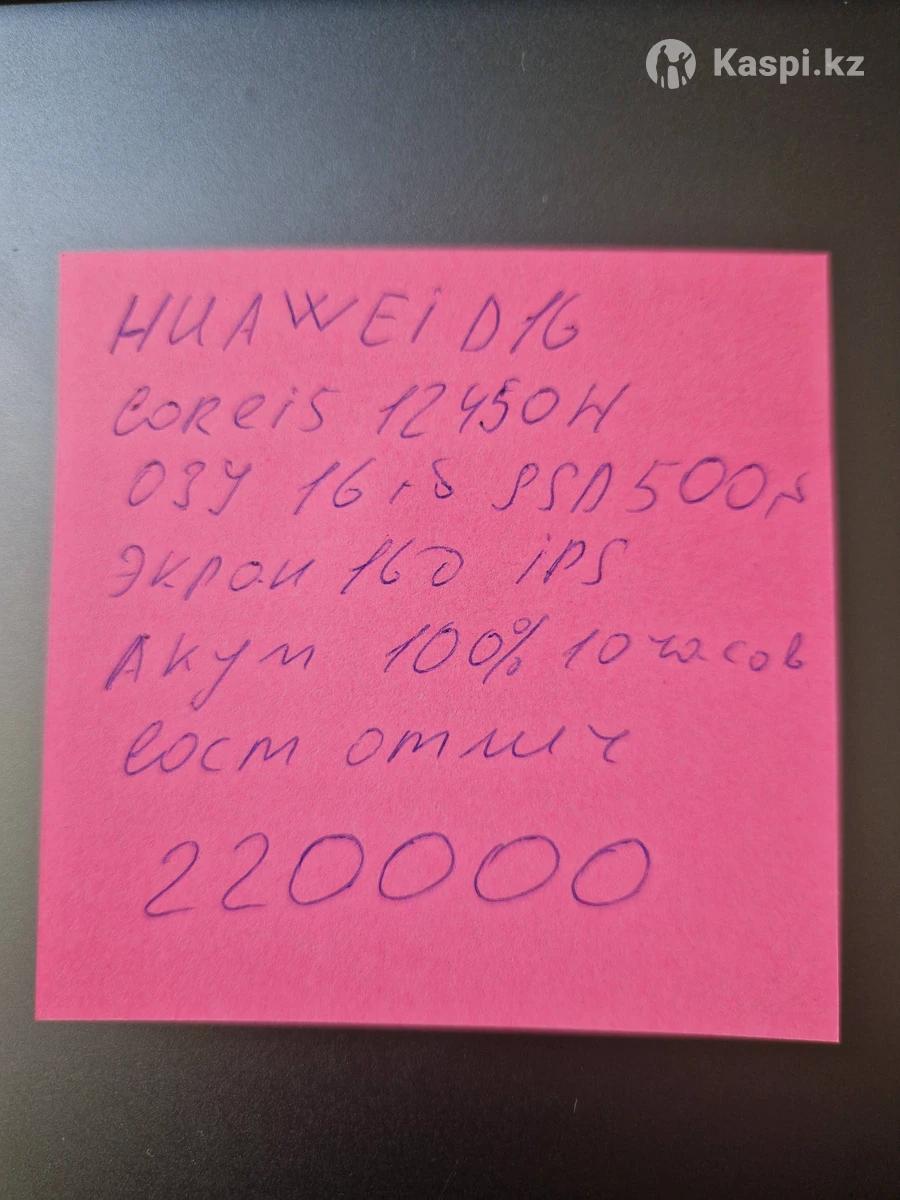 Kaspi.kz
HUAWEi D16
Corei5 12450H
ОЗУ 16 гб SSD 500г
Экран 16д iPS
Акум 100% 10 часов
Сост отлич
220000